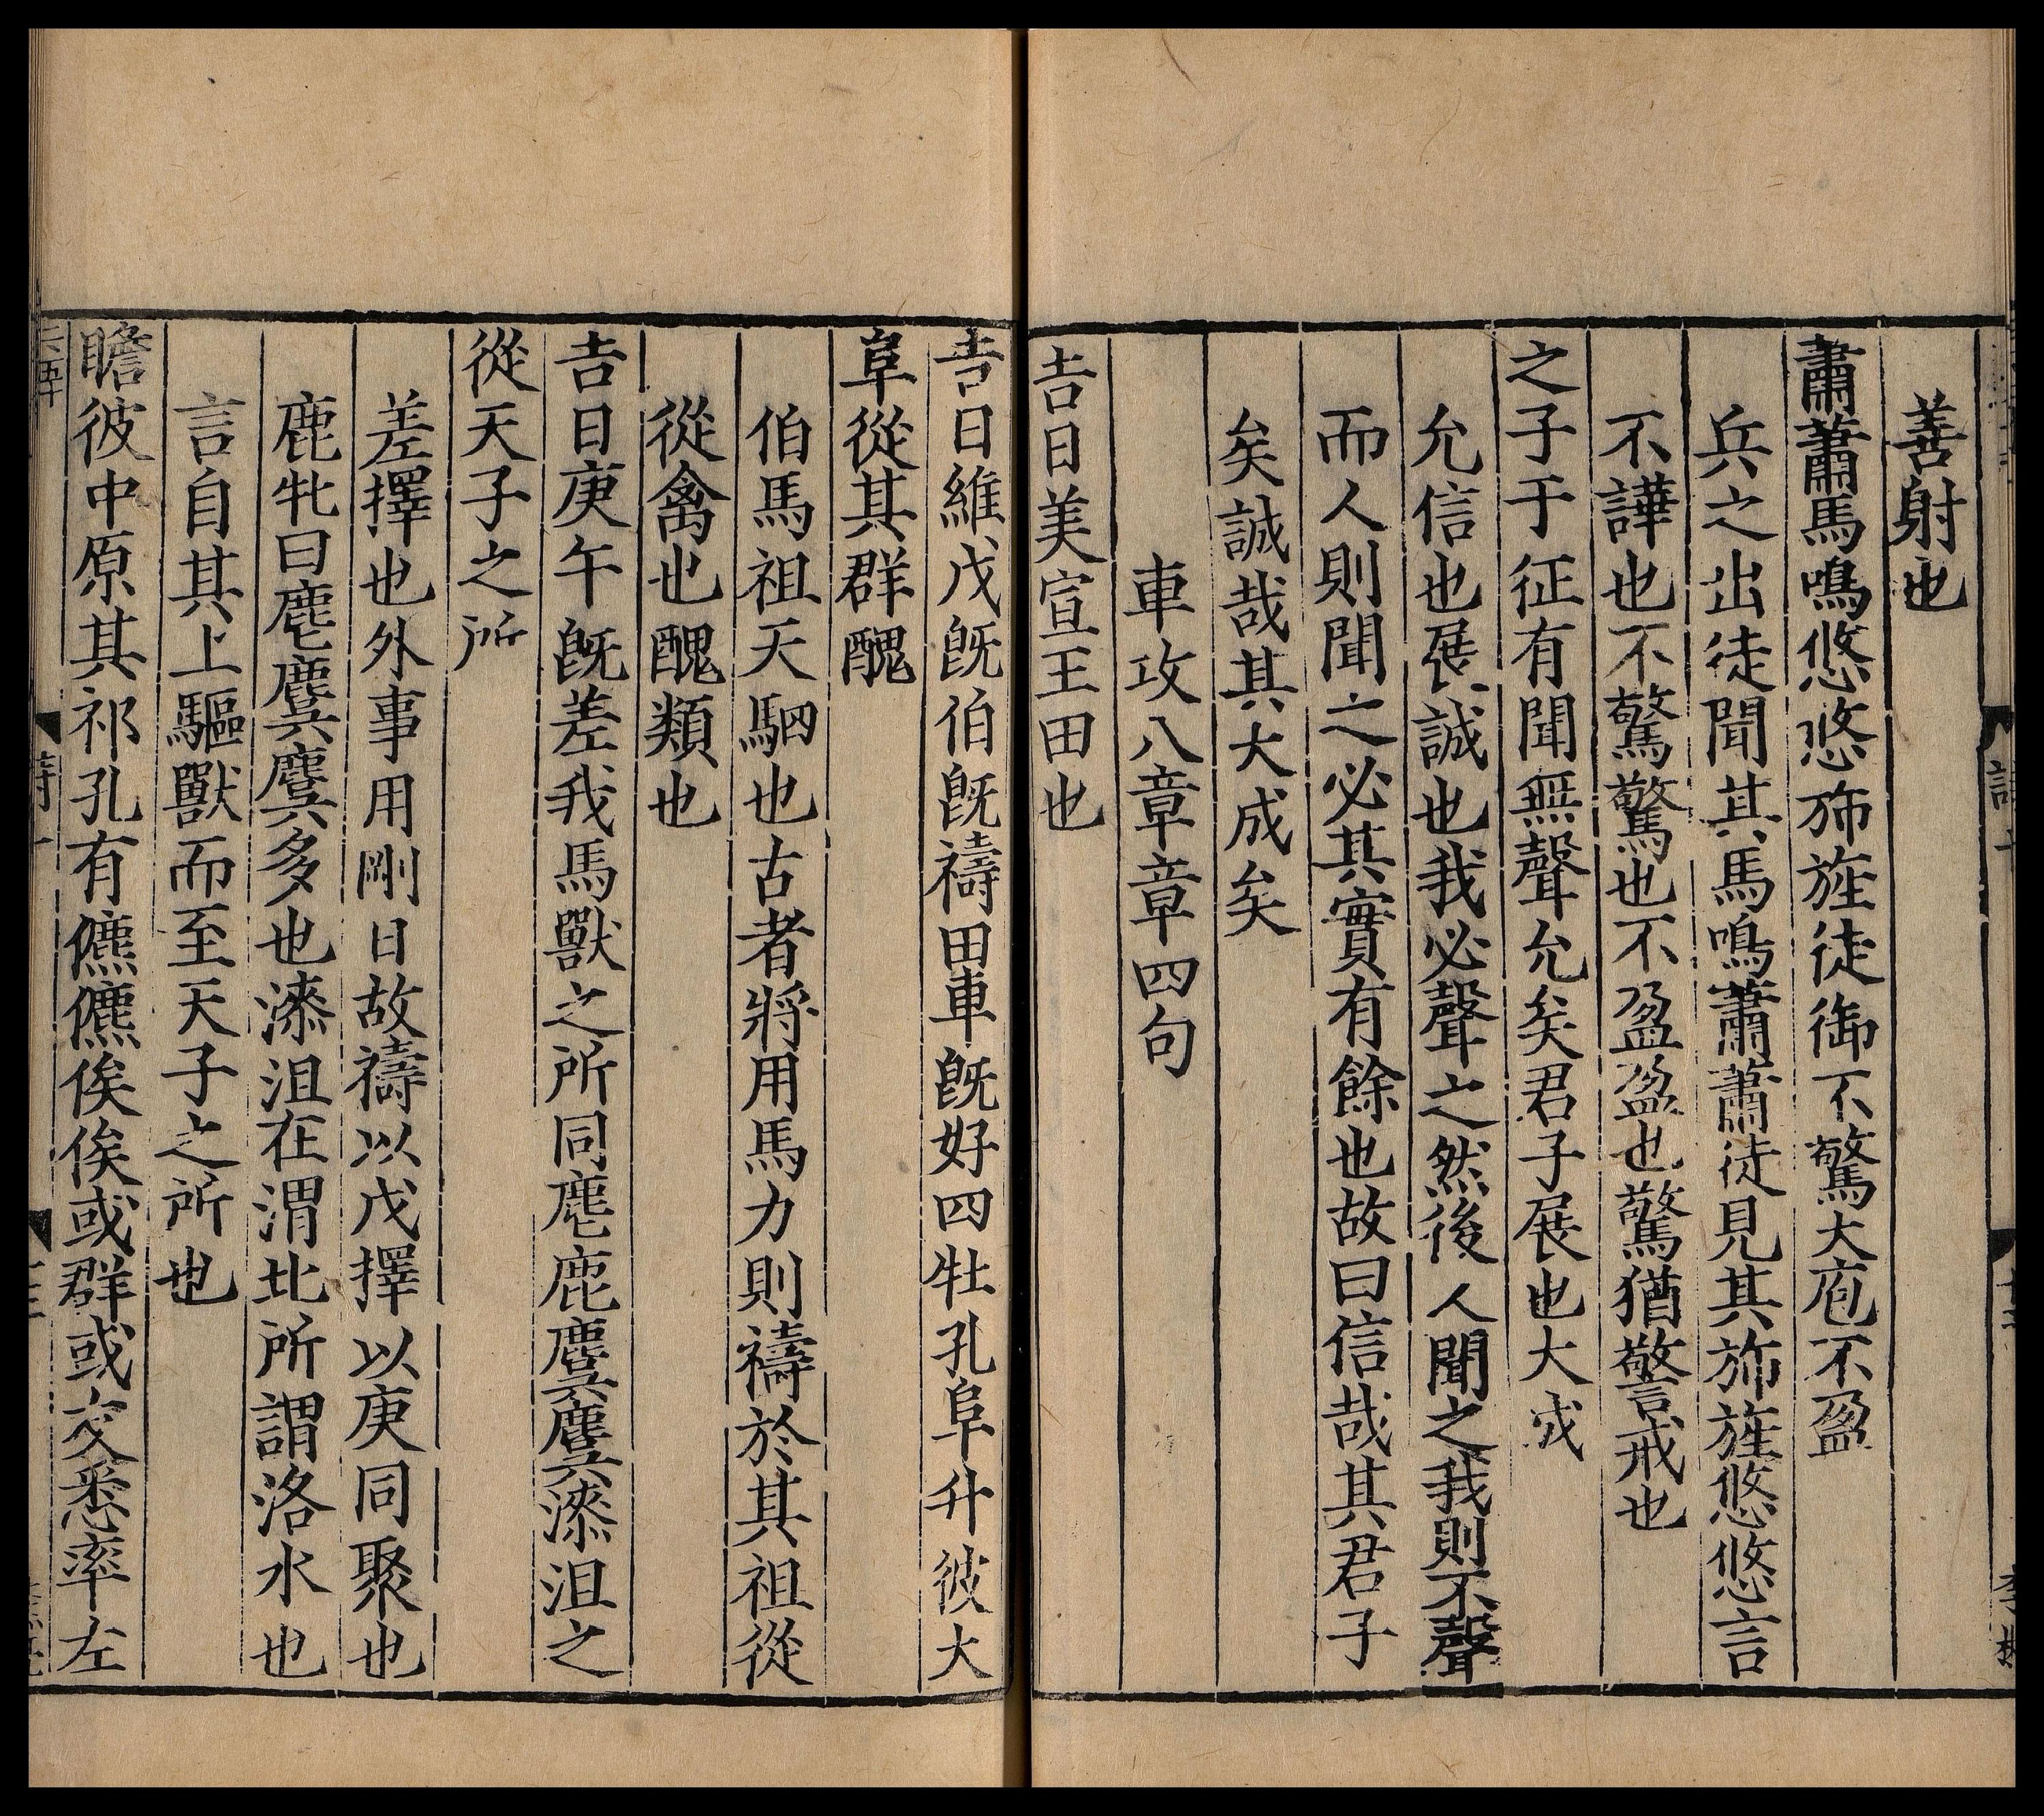 善射也
蕭蕭馬鳴悠悠斾旌徒御不驚大庖不盈
兵之出徒聞其馬鳴蕭蕭徒見其斾旌悠悠言
不譁也不驚驚也不盈盈也驚猶警戒也
之子于征有聞無聲允矣君子展也大成
允信也展誠也我必聲之然後人聞之我則不聲
而人則聞之必其實有餘也故曰信哉其君子
矣誠哉其大成矣
車攻八章章四句
吉日美宣王田也
吉日維戊旣伯旣禱田車旣好四牡孔阜升彼大
阜從其群醜
伯馬祖天駟也古者將用馬力則禱於其祖從
從禽也醜類也
吉日庚午旣差我馬獸之所同麀鹿麌麌漆沮之
從天子之所
差擇也外事用剛日故禱以戊擇以庚同聚也
鹿牝曰麀麌麌多也漆沮在渭北所謂洛水也
言自其上驅獸而至天子之所也
瞻彼中原其祁孔有儦儦俟俟或群或友悉率左